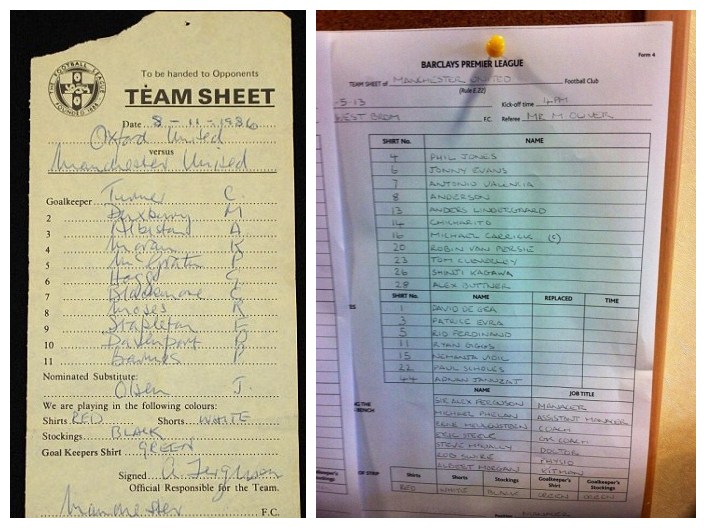 THE FOOTBALL LEAGUE
FOUNDED 1888
To be handed to Opponents
TEAM SHEET
Date 8 - 11 - 1986
Oxford United
versus
Manchester United
Goalkeeper Turner C.
2 Duxbury M
3 Albiston A
4 Moran K
5 McGrath P
6 Hogg G
7 Blackmore C
8 Moses R
9 Stapleton F
10 Davenport P
11 Barnes P
Nominated Substitute:
Olsen J.
We are playing in the following colours:
Shirts RED Shorts WHITE
Stockings BLACK
Goal Keepers Shirt GREEN
Signed A Ferguson
Official Responsible for the Team.
Manchester F.C.
Form 4
BARCLAYS PREMIER LEAGUE
TEAM SHEET of MANCHESTER UNITED Football Club
(Rule E.22)
-5-13 Kick-off time 4PM
WEST BROM F.C. Referee MR M. OLIVER
SHIRT No. NAME
4 PHIL JONES
6 JONNY EVANS
7 ANTONIO VALENCIA
8 ANDERSON
13 ANDERS LINDEGAARD
14 CHICHARITO
16 MICHAEL CARRICK (C)
20 ROBIN VAN PERSIE
23 TOM CLEVERLEY
26 SHINJI KAGAWA
28 ALEX BUTTNER
SHIRT No. NAME REPLACED TIME
1 DAVID DE GEA
3 PATRICE EVRA
5 RIO FERDINAND
11 RYAN GIGGS
15 NEMANJA VIDIC
22 PAUL SCHOLES
44 ADNAN JANUZAJ
NAME JOB TITLE
SIR ALEX FERGUSON MANAGER
MICHAEL PHELAN ASSISTANT MANAGER
RENE MEULENSTEEN COACH
ERIC STEELE GK COACH
STEVE MCNALLY DOCTOR
ROB SWIRE PHYSIO
ALBERT MORGAN KITMAN
OF STRIP Shirts Shorts Stockings Goalkeeper's Shirt Goalkeeper's Stockings
RED WHITE BLACK GREEN GREEN
MANAGER